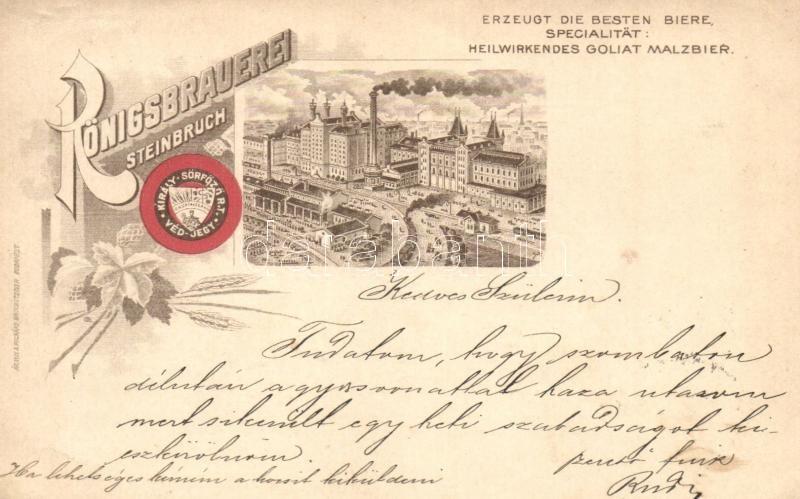 ERZEUGT DIE BESTEN BIERE,
SPECIALITÄT:
HEILWIRKENDES GOLIAT MALZBIER.
KÖNIGSBRAUEREI
STEINBRUCH
KIRÁLY-SÖRFŐZŐ R.T.
VÉD-JEGY
darabanth.com
Kedves Szüleim.
Tudatom, hogy szombaton
délután a gyorsvonattal haza utazom
mert sikerült egy heti szabadságot ki-
eszközölnöm.
Ha lehetséges kérném a kocsit kiküldeni
Rudi